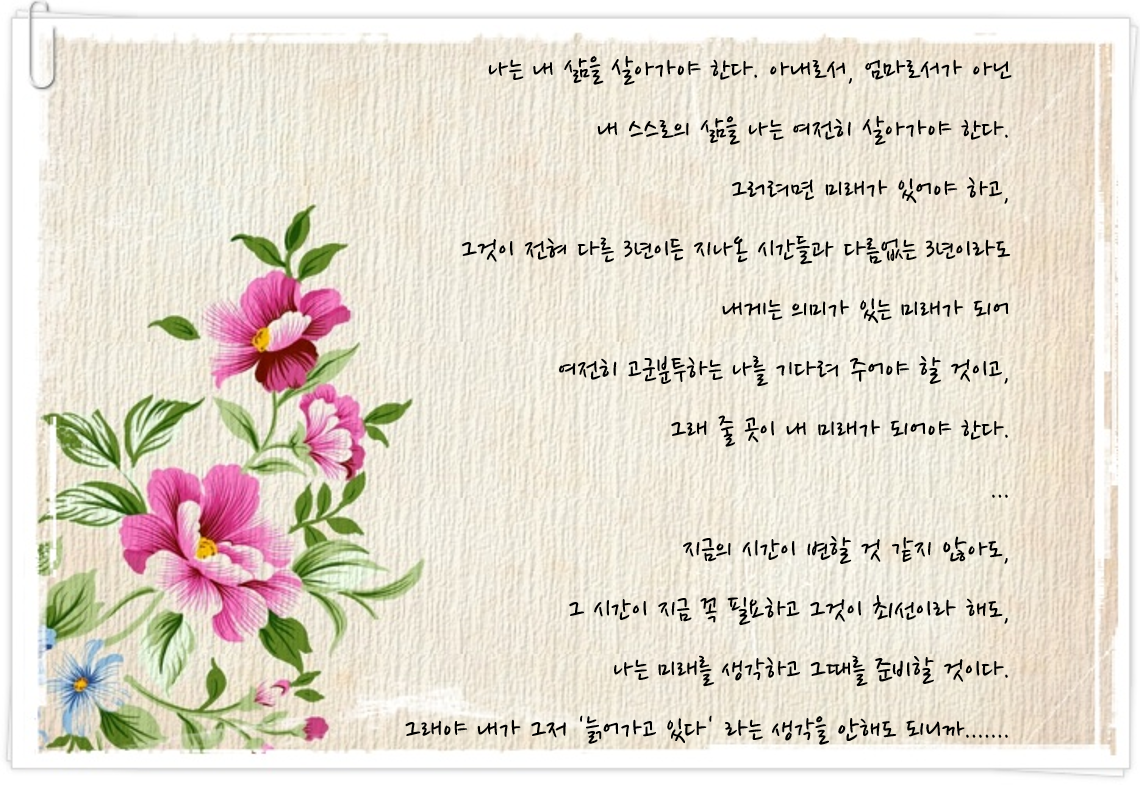 나는 내 삶을 살아가야 한다. 아내로서, 엄마로서가 아닌
내 스스로의 삶을 나는 여전히 살아가야 한다.
그러려면 미래가 있어야 하고,
그것이 전혀 다른 3년이든 지나온 시간들과 다름없는 3년이라도
내게는 의미가 있는 미래가 되어
여전히 고군분투하는 나를 기다려 주어야 할 것이고,
그래 줄 곳이 내 미래가 되어야 한다.
...
지금의 시간이 변할 것 같지 않아도,
그 시간이 지금 꼭 필요하고 그것이 최선이라 해도,
나는 미래를 생각하고 그때를 준비할 것이다.
그래야 내가 그저 '늙어가고 있다' 라는 생각을 안해도 되니까.......